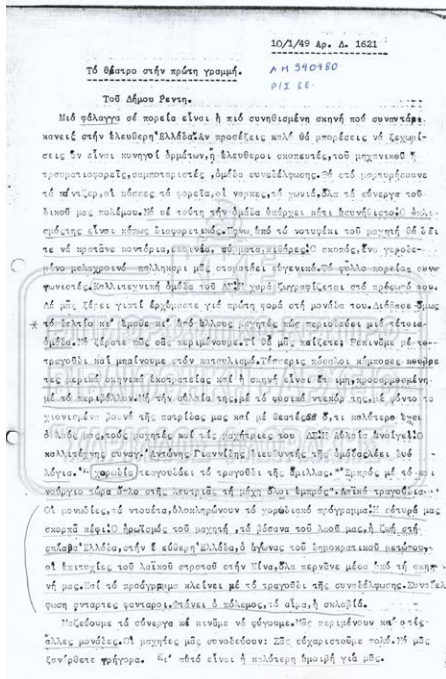 10/1/49 Αρ. Δ. 1621
ΑΜ 340480
Ρ/Σ ΕΕ
Τό θέατρο στήν πρώτη γραμμή.
Τοῦ Δήμου Ρεντη.
Μιά φάλαγγα σέ πορεία εἶναι ἡ πιό συνηθισμένη σκηνή πού συναντάει
κανείς στήν ἐλεύθερη Ἑλλάδα. Ἀν προσέξεις καλά θά μπορέσεις νά ξεχωρί-
σεις ἄν εἶναι κυνηγοί ἁρμάτων, ἤ ἐλεύθεροι σκοπευτές, τοῦ μηχανικοῦ ἤ
τραυματιοφορεῖς, σαμποταριστές, ὁμάδα συναδέλφωσης. Θά στό μαρτυρήσουνε
τό πάντζερ, οἱ κάσσες τά φορεῖα, οἱ ναρκες, τά χωνιά, ὅλα τά σύνεργα τοῦ
δικοῦ μας πολέμου. Μά σέ τούτη τήν ὁμάδα ὑπάρχει κάτι ἀσυνήθιστο. Ὁ ὁπλι-
σμός της εἶναι κάπως διαφορετικός. Πάνω ἀπό τό ντουφέκι τοῦ μαχητή θά δεῖ-
τε νά κρατᾶνε κοντάρια, σύρματα, κιθάρες. Ὁ σκοπός, ἕνα γεροδε-
μένο μελαχρινό παλληκάρι μᾶς σταματάει εὐγενικά. Τό φύλλο πορείας συνα-
γωνιστές. Καλλιτεχνική ὁμάδα τοῦ ΔΣ. Ἡ χαρά ζωγραφίζεται στό πρόσωπό του.
Δέ μᾶς ξέρει γιατί ἐρχόμαστε γιά πρώτη φορά στή μονάδα του. Διάβασε ὅμως
τό δελτίο κι' ἔμαθε κι' ἀπό ἄλλους μαχητές πώς περιοδεύει μιά τέτοια
ὁμάδα. Νά ξέρατε πῶς σᾶς περιμένουμε. Τί θά μᾶς παίξετε; Ξεκινᾶμε μέ το
τραγούδι καί μπαίνουμε στόν καταυλισμό. Τέσσερις πάσσαλοι κάμποσες κουβέρ
τες μερικά σκηνικά ἐκστρατείας καί ἡ σκηνή εἶναι ἕτοιμη, προσαρμοσμένη
μέ τό περιβάλλον. Μέ τήν αὐλαία της, μέ τό φυσικό ντεκόρ της, μέ φόντο τά
χιονισμένα βουνά τῆς πατρίδας μας καί μέ θεατές ὅ,τι καλύτερο ἔχει
ὁ λαός μας, τούς μαχητές καί τίς μαχήτριες του ΔΣ. Ἡ Αὐλαία ἀνοίγει. Ὁ
καλλιτέχνης συναγ. Ἀντώνης Γιαννίδης διευθυντής τῆς ὁμάδας λέει δυό
λόγια. Ἡ χορωδία τραγουδάει τό τραγούδι τῆς ὁμάδας. "Ἐμπρός μέ τό και
νούργιο τώρα ὅπλο στῆς λευτεριᾶς τή μάχη ὅλοι ἐμπρός". Λαϊκά τραγούδια
Οἱ μονωδίες, τά ντουέτα, ὁλοκληρώνουν τό χορωδιακό πρόγραμμα. Ἡ σάτυρά μας
σκορπᾶ κέφι. Ὁ ἡρωϊσμός τοῦ μαχητή, τά βάσανα τοῦ λαοῦ μας, ἡ ζωή στή
σκλάβα Ἑλλάδα, στήν ἐλεύθερη Ἑλλάδα, ὁ ἀγώνας τοῦ δημοκρατικοῦ μετώπου,
οἱ ἐπιτυχίες τοῦ λαϊκοῦ στρατοῦ στήν Κίνα, ὅλα περνᾶνε μέσα ἀπό τή σκη-
νή μας. Καί τό πρόγραμμα κλείνει μέ τό τραγούδι τῆς συναδέλφωσης. Συναδέλ
φωση φανταροι. Φτάνει ὁ πόλεμος, τό αἷμα, ἡ σκλαβιά.
Μαζεύουμε τά σύνεργα καί κινᾶμε νά φύγουμε. Μᾶς περιμένουν καί στίς
ἄλλες μονάδες. Οἱ μαχητές μᾶς συνοδεύουν: Σᾶς εὐχαριστοῦμε πολύ. Νά μᾶς
ξανάρθετε γρήγορα. Κι' αὐτό εἶναι ἡ καλύτερη ἀμοιβή γιά μᾶς.